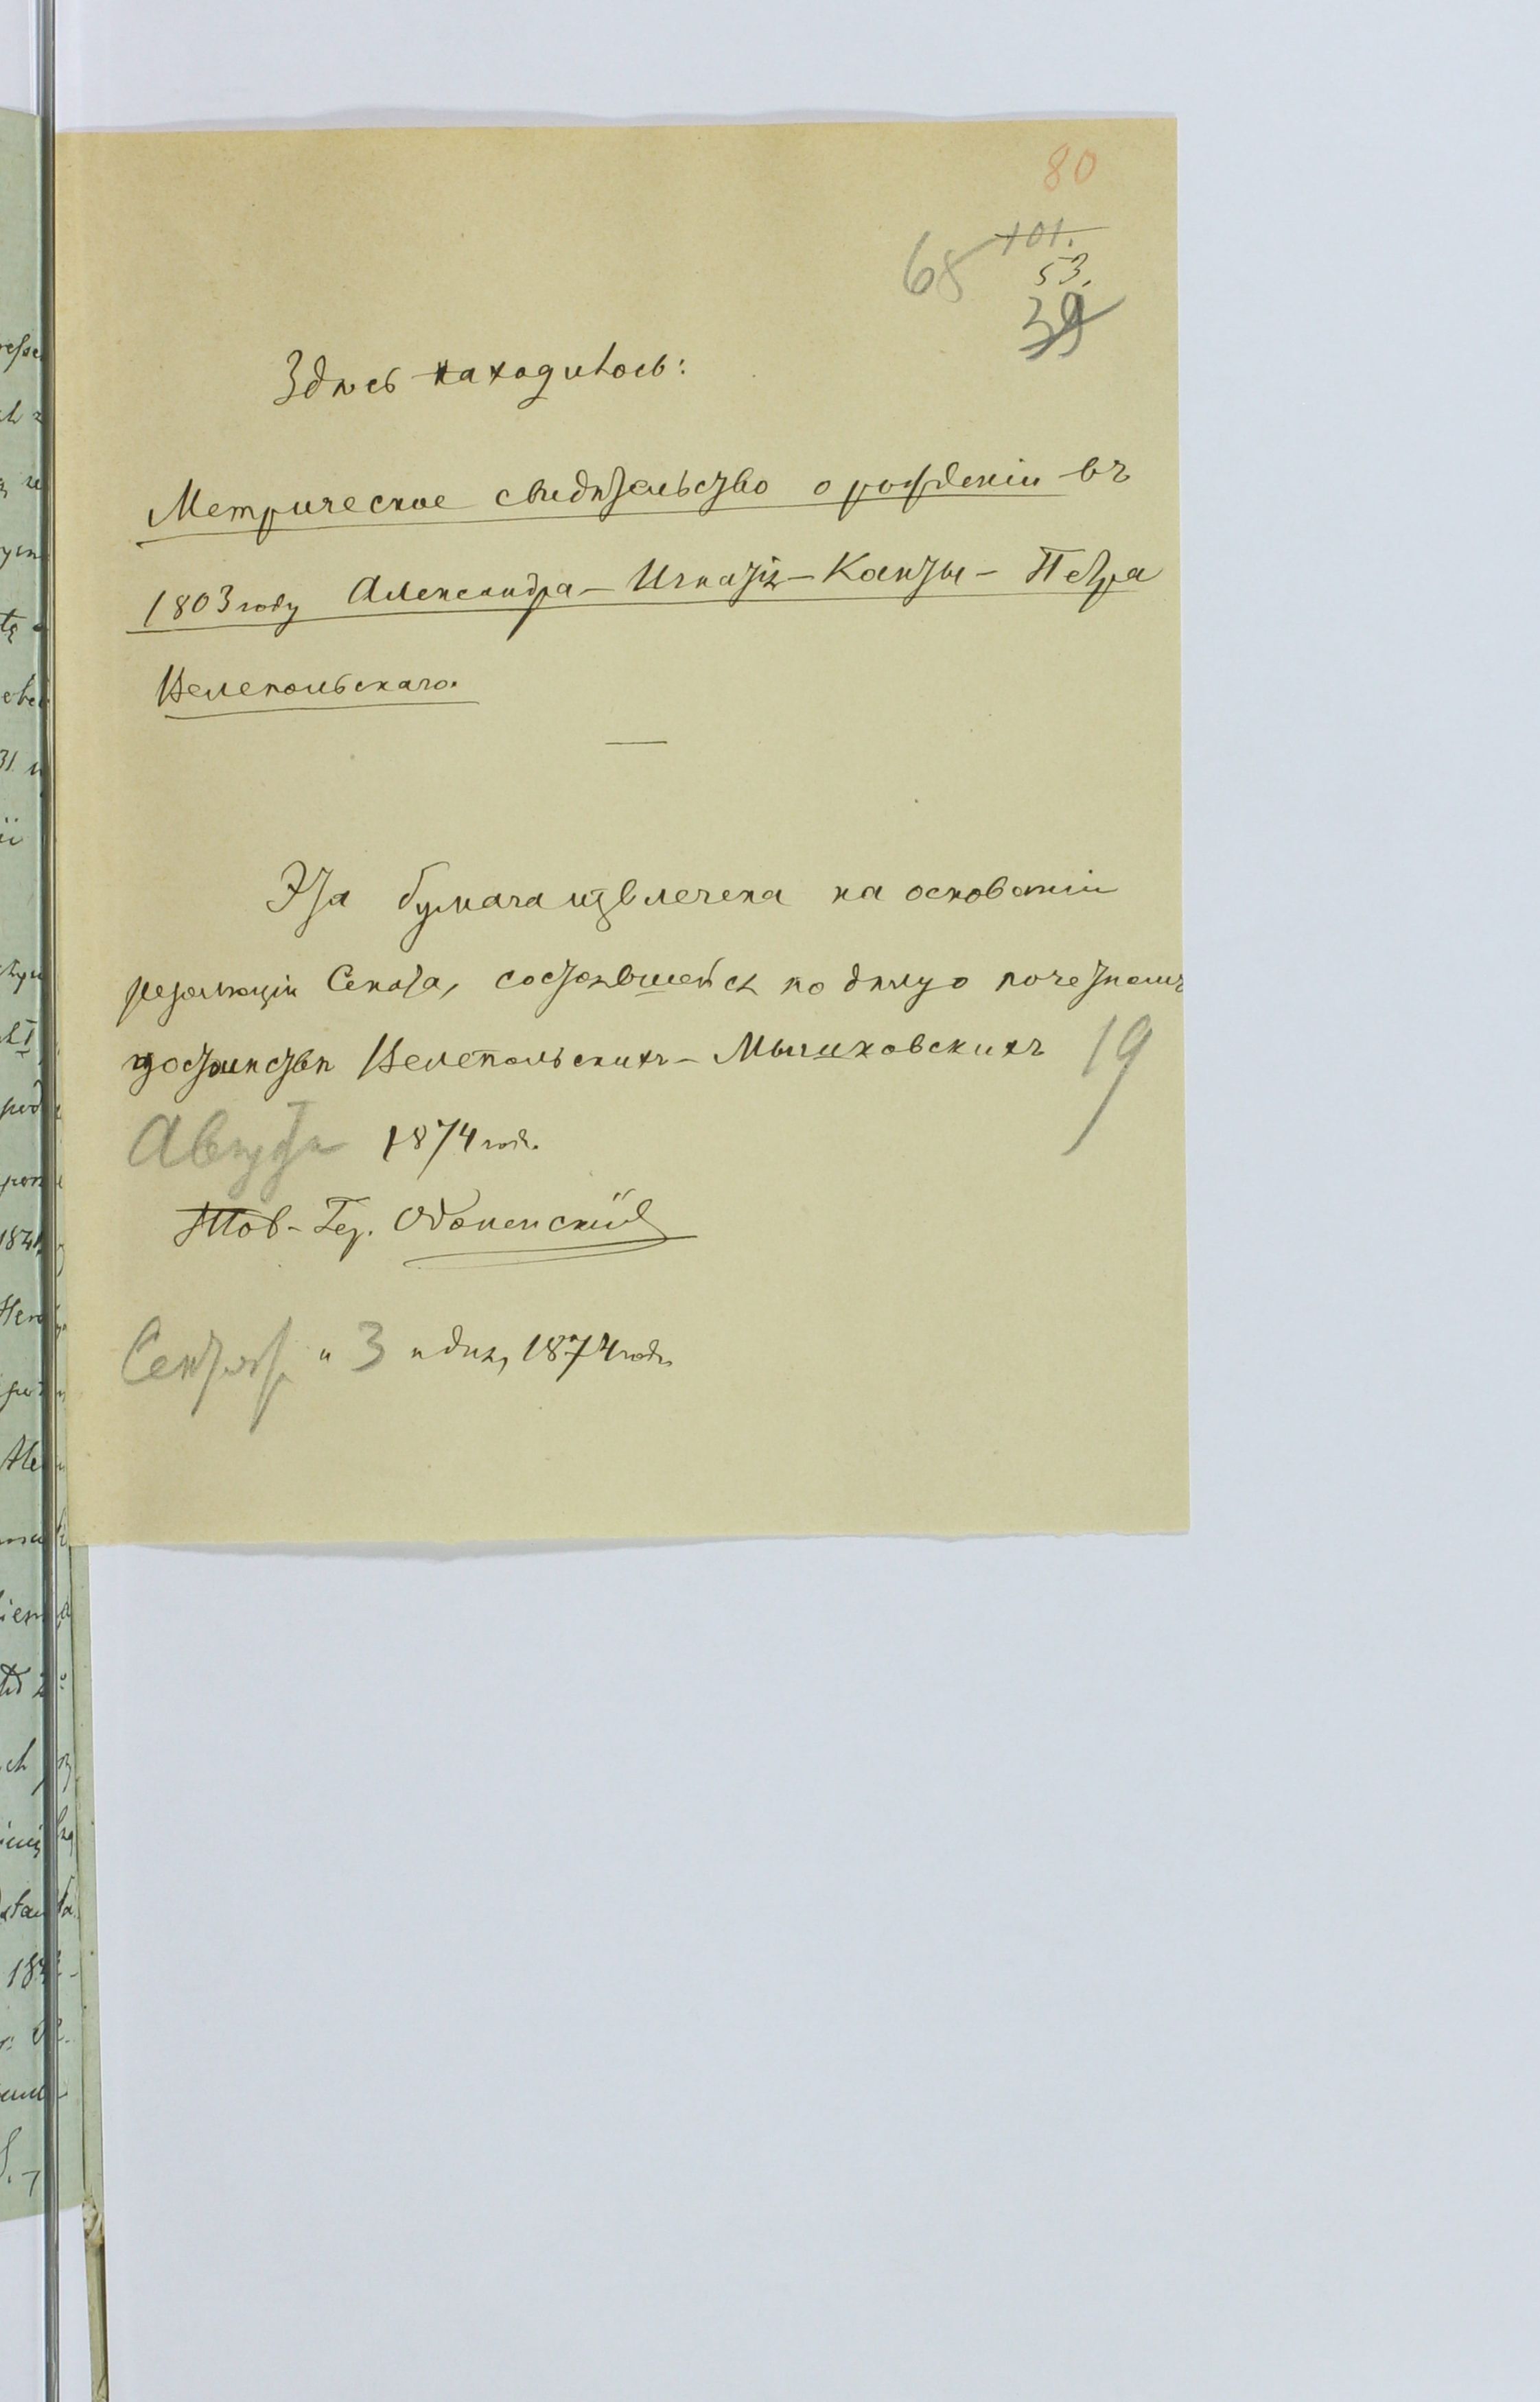 80
101.
68
53.
39
Здѣсь находилось:
Метрическое свидѣтельство о рожденіи въ
1803 году Александра-Игнатія-Канты-Петра
Велепольскаго.
Эта бумага извлечена на основаніи
резолюціи Сената, состоявшейся по дѣлу о почетномъ
достоинствѣ Велепольскихъ-Мышковскихъ 19
Августа 1874 год.
Тов-Гер.
Сентяб. " 3 " дня, 1874 года